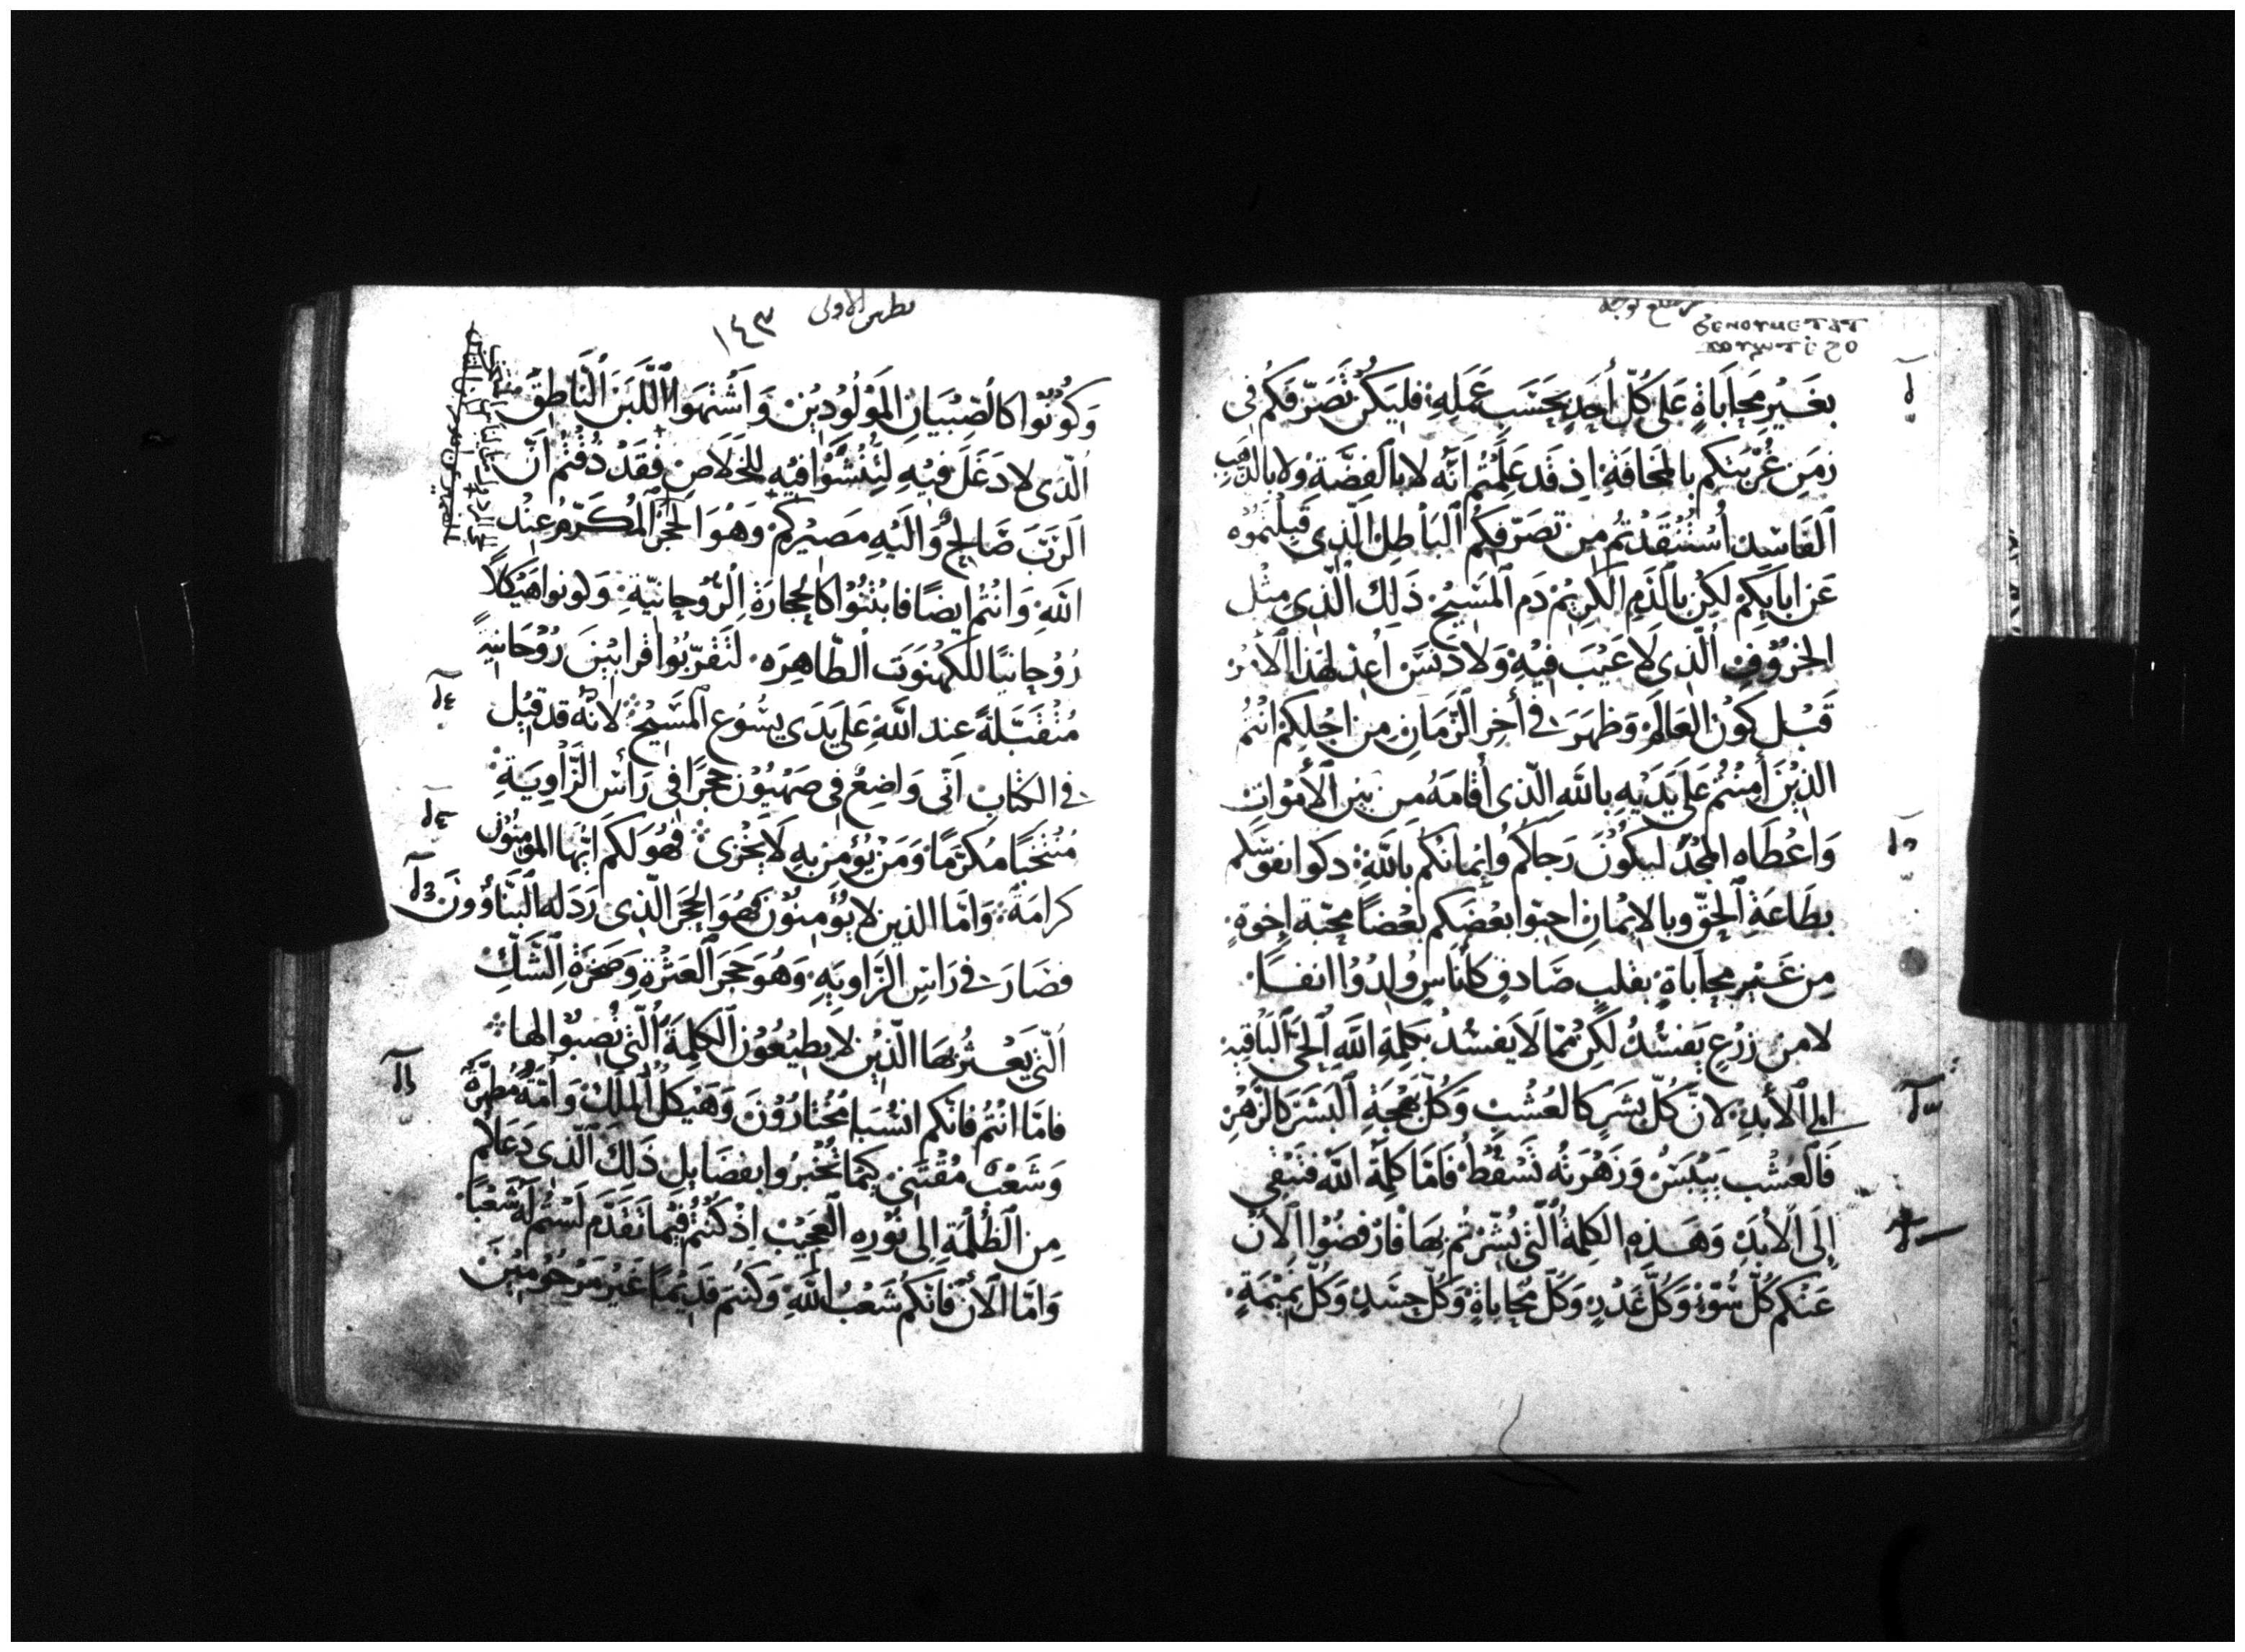 بغَيْرِ مُحَابَاةٍ عَلَى كُلّ أَحَدٍ بحَسَبِ عَمَلِهِ فليَكُنْ تَصَرّفكُم فِى
زمَنِ غُرْبَتكم بالمخافَةِ اذ قَد عَلِمْتُم اَنّه لا بالفِضَّة ولا بالذهب
الفَاسِدِ اُسْتُنْقَذتُم مِن تصَرّفكُم البَاطِل الّذِى قَبِلْتمُوْه
عَن ابايكِم لكِن بالدَّمِ الكَرِيْم دَم المَسِيْح ذَلِكَ الّذِى مِثْل
الخرُوْفِ الّذِى لَا عَيْبَ فِيْهِ وَلا دَنَسَ اُعِدّ لهَذَا الأَمْر
قَبْل كَوْنِ العَالَم وَظهَرَ فِى أخِرِ الزَّمَانِ مِن اجْلِكمْ انْتُم
الّذِيْنَ أمنْتُم عَلَى يَدَيْهِ بالله الّذى أقامَهُ من بَيْن الأَمْوَاتِ
وَاعْطَاه المَجْدَ ليَكُوْنَ رَجَاكُم وَاِيْمَانكُم باللهِ زكوا نفوسكم
بطَاعَةِ الحَقِّ وبالايْمَانِ احبّوا بعْضَكم بعْضاً محبّة إخوةٍ
مِن غَيْرِ محابَاةٍ بقَلبٍ صَادِقٍ كأنَاسٍ وُلدُوْا انفًا
لا مِن زَرْعٍ يَفسُدُ لكِن مِمّا لَا يَفسُدُ بكَلِمَةِ اللهِ الحَىّ البَاقيَة
الى الأَبدِ لانَّ كُلّ بشَرٍ كالعُشْبِ وَكُلّ بَهجَةِ البَشَر كالزَّهْرِ
فَالعُشْب يَيْبَسُ وَزَهْرَتُه تَسْقُطُ فَامّا كلِمَة الله فتَبْقى
إلَى الأَبَدِ وَهَذِه الكلِمَةُ الّتِى بُشّرْتُم بهَا فارْفضُوْا الاَنَ
عَنكم كُلّ سُوْءٍ وَكُلَّ غَدْرٍ وَكُلّ مُحَابَاةٍ وَكُلّ حَسَدٍ وَكُلّ نمِيْمَةٍ
بطرس الاولى
١٤٣
وَكُوْنُوْا كالصِّبْيَانِ المَوْلُوْدِيْنَ وَاَشْتَهُوا اللَّبَنَ النَّاطِقَ
الّذى لا دَغَلَ فيْهِ لِتُنْشَوْا فِيْهِ للخَلَاصِ فقَدْ ذُقْتُم اَنَّ
الرَّبَّ صَالِحٌ وَاليْهِ مَصيْركُمْ وَهُوَ الحَجَرُ المُكَرّمُ عِنْدَ
اللهِ وَانْتُم ايضًا فابْتَنُوْا كالحِجَارَةِ الرّوْحانيّةِ وَكونوا هَيْكلًا
رُوْحانيًا للكَهنُوَت الطّاهِرَه لتُقرّبُوا قَرابيْنَ رُوْحَانيّةً
مُتَقَبَّلَةً عند اللهِ عَلَى يَدَى يسُوْع المَسِيْح لانّه قد قِيْل
فى الكتَابِ انّى وَاضِعٌ فِى صَهْيُوْن حجَرًا فِى رَأسِ الزَّاوِيَةِ
مُنْتخَبًا مكرّمًا وَمَنْ يُؤْمن بهِ لَا يخْزى فهُوَ لكُم ايّها المؤمنُوْن
كرامَةٌ وَامّا الذين لا يُؤْمنُوْن فهُوَ الحَجَر الّذِى رَذَله البَنَّاؤونَ
فصَارَ فى رَاسِ الزَّاوِيَه وَهُوَ حَجَر العَثْرَةِ وَصَخْرَة الشَّكِّ
الّتى يَعْثُر بهَا الّذِيْن لا يطيْعُوْن الكَلِمَةَ الّتى نُصِبُوا لها
فامّا انْتُم فانكم انسْبَا مُخْتارُوْنَ وَهَيْكل المُلْكِ وَأُمّةٌ مُطهّرَةٌ
وَشَعْبٌ مُقْتنى كيْمَا تُخْبرُوا بفضَايلِ ذَلِكَ الّذِى دَعَاكُم
مِن الظُلْمَةِ اِلى نُوْرِه العَجِيْب اِذْ كُنْتُم فِيْمَا تقَدَّم لَسْتُم لَه شَعْبًا
وَامّا الآنَ فَانّكم شَعْبُ اللهِ وَكنتُم قَدِيْمًا غَيْر مَرْحُوْمِيْنَ